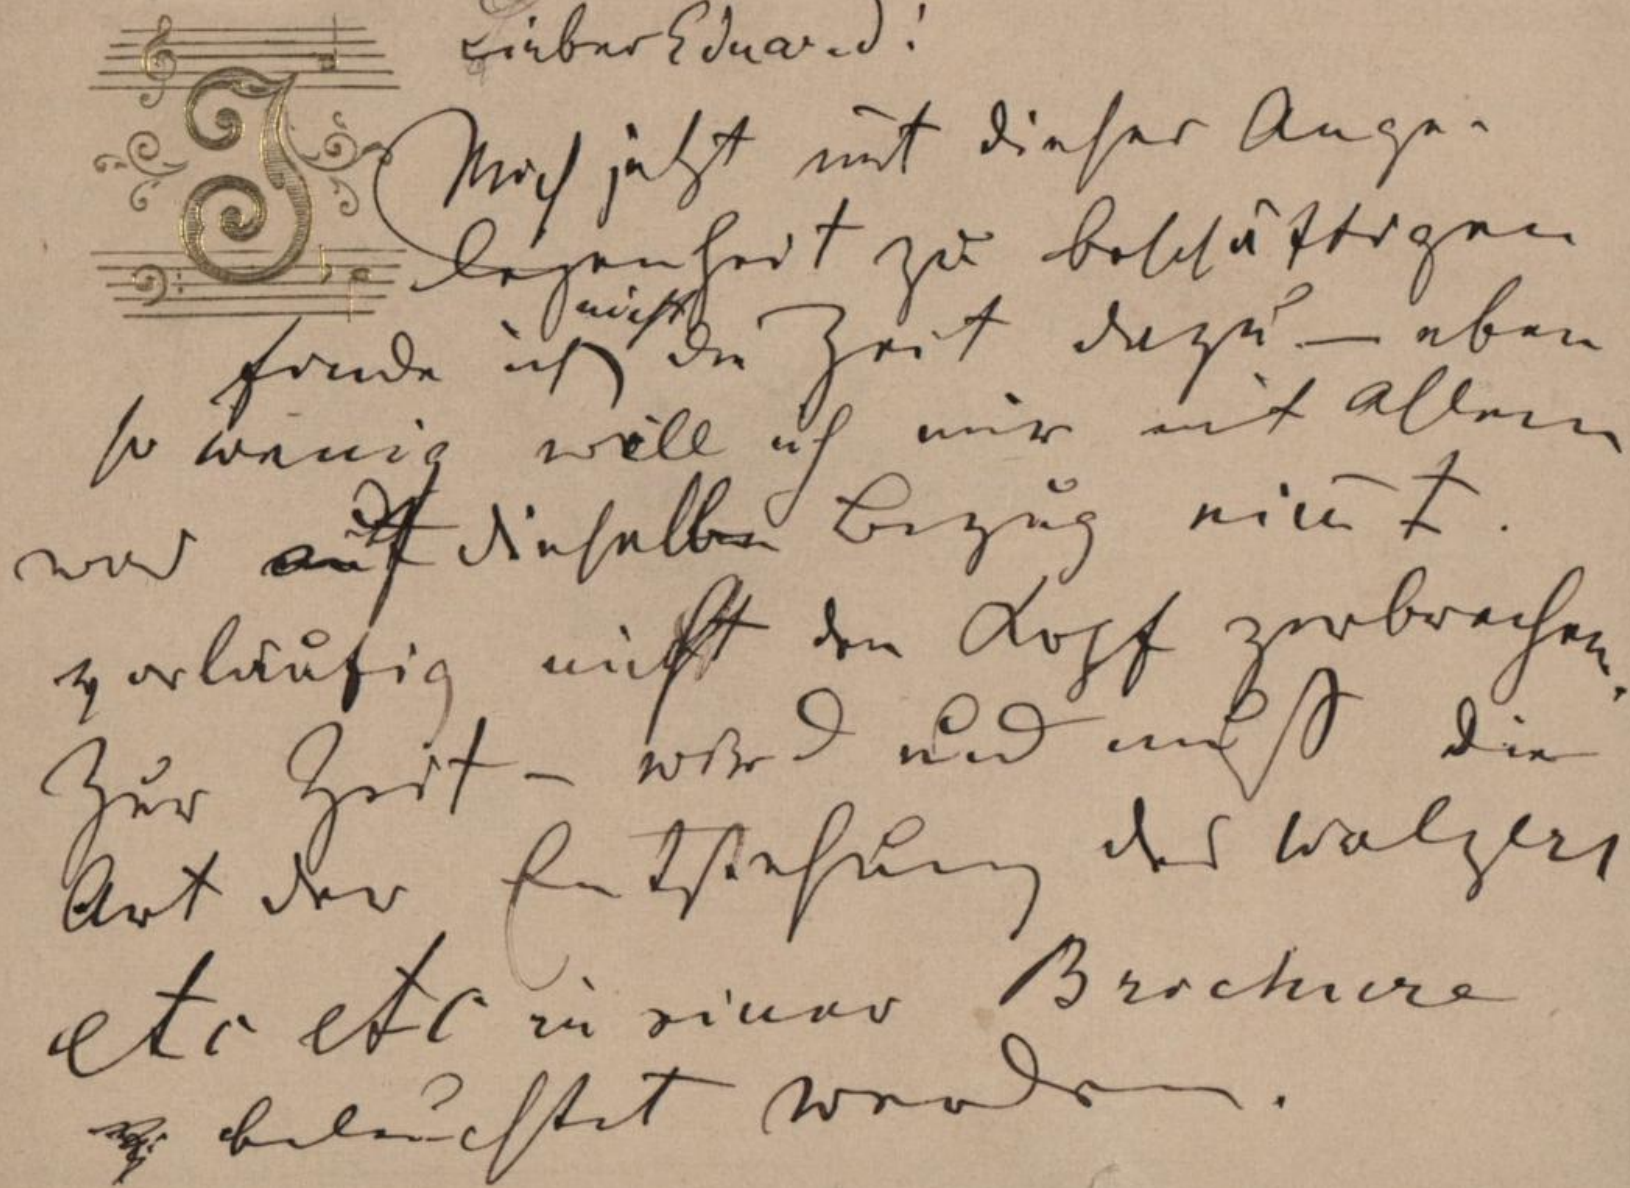 Lieber Eduard!
Mich jetzt mit dieser Ange-
legenheit zu beschäftigen
nicht
finde ich die Zeit dazu – eben
so wenig will ich mir mit allem
was auf dieselbe Bezug nim̅t.
vorläufig nicht den Kopf zerbrechen.
Zur Zeit – wird und muß die
Art der Entstehung des Walzers
etc etc in einer Brochure
beleuchtet werden.